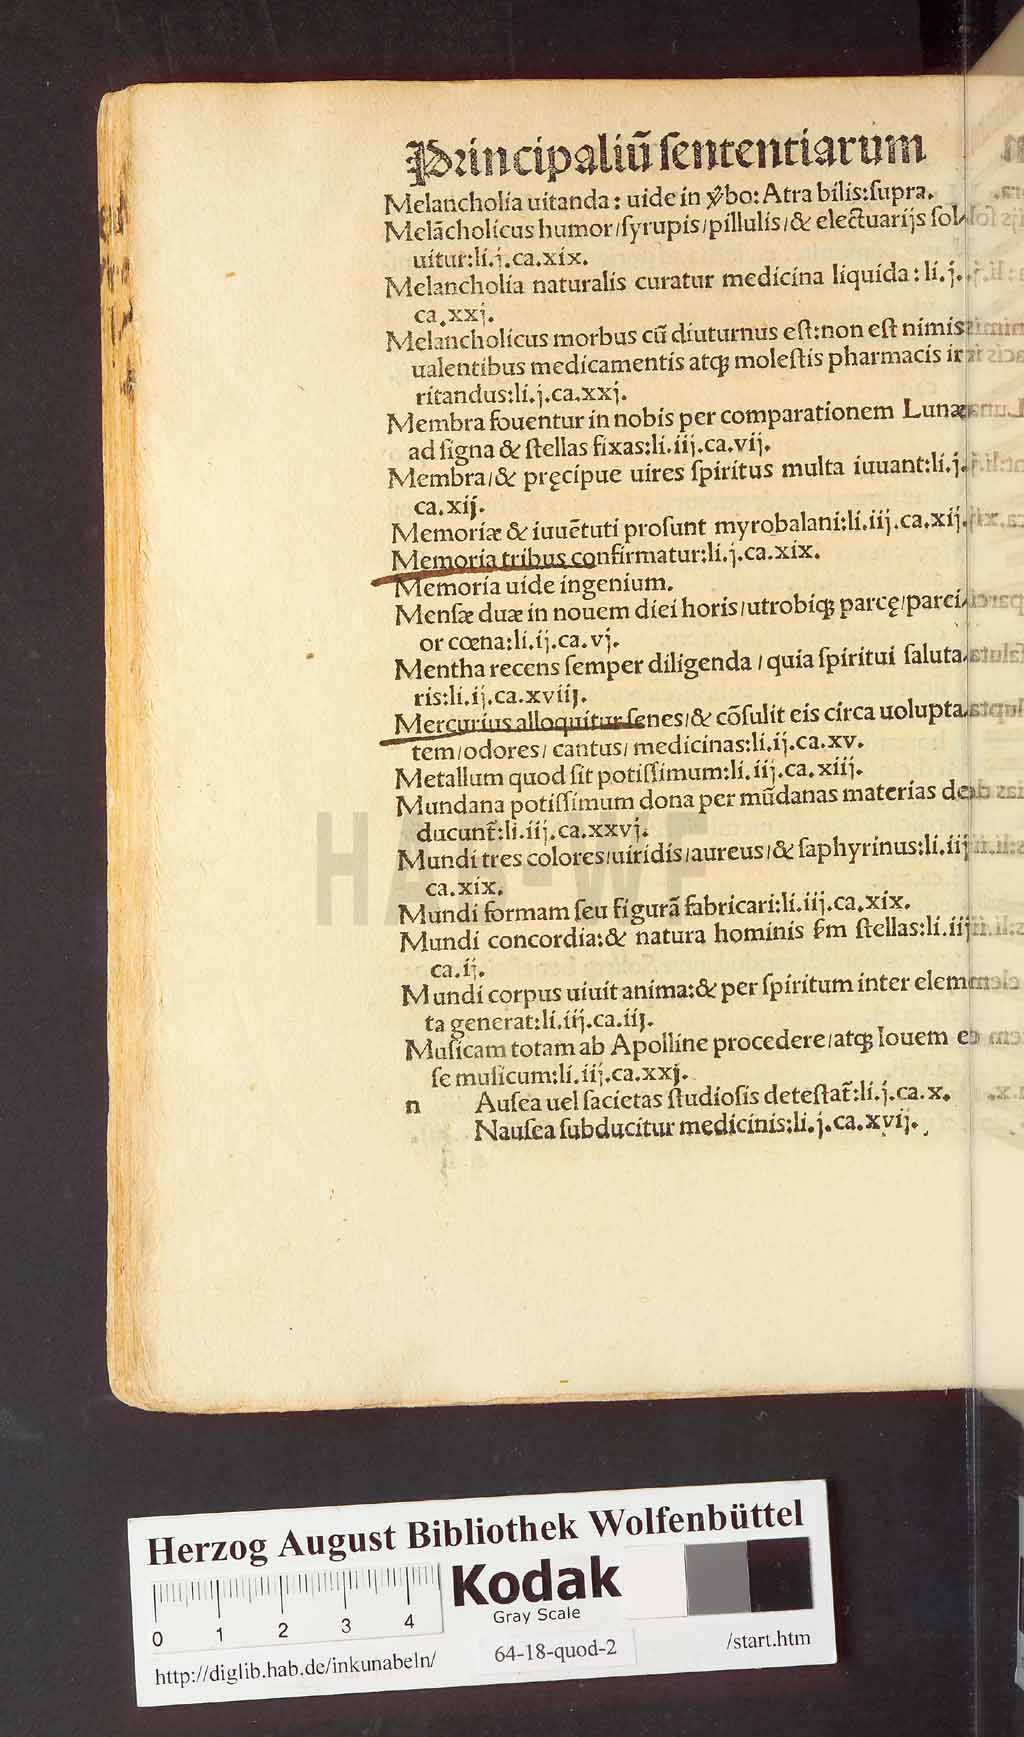 Principaliũ ſententiarum
Melancholia uitanda: uide in ꝟbo: Atra bilis:ſupra.
Melãcholicus humor/ſyrupis/pillulis/& electuarijs ſol-
uitur:li.j.ca.xix.
Melancholia naturalis curatur medicina liquida: li.j.
ca.xxj.
Melancholicus morbus cũ diuturnus eſt:non eſt nimis
ualentibus medicamentis atqꝫ moleſtis pharmacis ir
ritandus:li.j.ca.xxj.
Membra fouentur in nobis per comparationem Lunæ
ad ſigna & ſtellas fixas:li.iij.ca.vij.
Membra/& pręcipue uires ſpiritus multa iuuant:li.j.
ca.xij.
Memoriæ & iuuẽtuti proſunt myrobalani:li.iij.ca.xij.
Memoria tribus confirmatur:li.j.ca.xix.
Memoria uide ingenium.
Menſæ duæ in nouem diei horis/utrobiqꝫ parcę/parci-
or cœna:li.ij.ca.vj.
Mentha recens ſemper diligenda / quia ſpiritui ſaluta-
ris:li.ij.ca.xviij.
Mercurius alloquitur ſenes/& cõſulit eis circa uolupta-
tem/odores/ cantus/ medicinas:li.ij.ca.xv.
Metallum quod ſit potiſſimum:li.iij.ca.xiij.
Mundana potiſſimum dona per mũdanas materias de
ducunt̃:li.iij.ca.xxvj.
Mundi tres colores/uiridis/aureus/& ſaphyrinus:li.iij
ca.xix.
Mundi formam ſeu figurã fabricari:li.iij.ca.xix.
Mundi concordia:& natura hominis ẜm ſtellas:li.iij
ca.ij.
Mundi corpus uiuit anima:& per ſpiritum inter elemen
ta generat:li.iij.ca.iij.
Muſicam totam ab Apolline procedere/atqꝫ Iouem eſ
ſe muſicum:li.iij.ca.xxj.
n Auſea uel ſacietas ſtudioſis deteſtat̃:li.j.ca.x.
Nauſea ſubducitur medicinis:li.j.ca.xvij.
HAB-WF
Herzog August Bibliothek Wolfenbüttel
Kodak
Gray Scale
0 1 2 3 4
http://diglib.hab.de/inkunabeln/ 64-18-quod-2 /start.htm